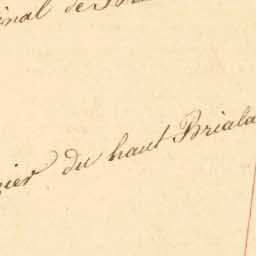 inal de
ier du haut Briala